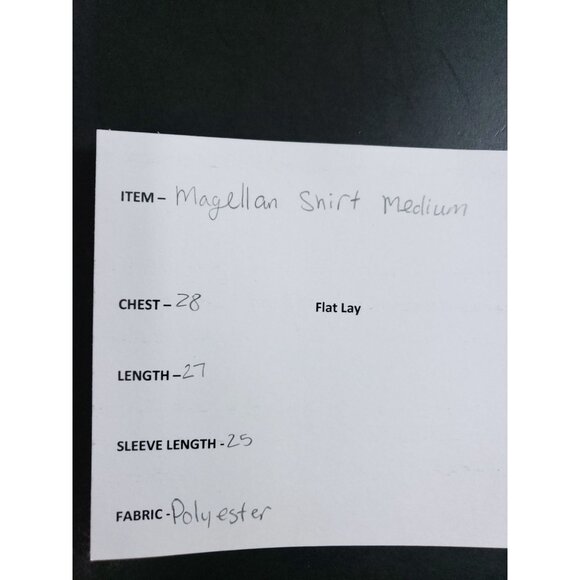 ITEM – Magellan Shirt Medium
CHEST – 28 Flat Lay
LENGTH – 27
SLEEVE LENGTH - 25
FABRIC - Polyester